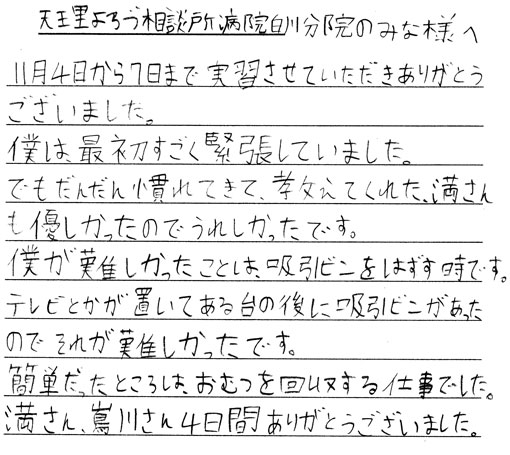 天王里よろづ相談所病院白川分院のみな様へ
11月4日から7日まで実習させていただきありがとう
ございました。
僕は、最初すごく緊張していました。
でもだんだん慣れてきて、教えてくれた、満さん
も優しかったのでうれしかったです。
僕が難しかったことは、吸引ビンをはずす時です。
テレビとかが置いてある台の後に吸引ビンがあった
のでそれが難しかったです。
簡単だったところは、おむつを回収する仕事でした。
満さん、嶌川さん4日間ありがとうございました。